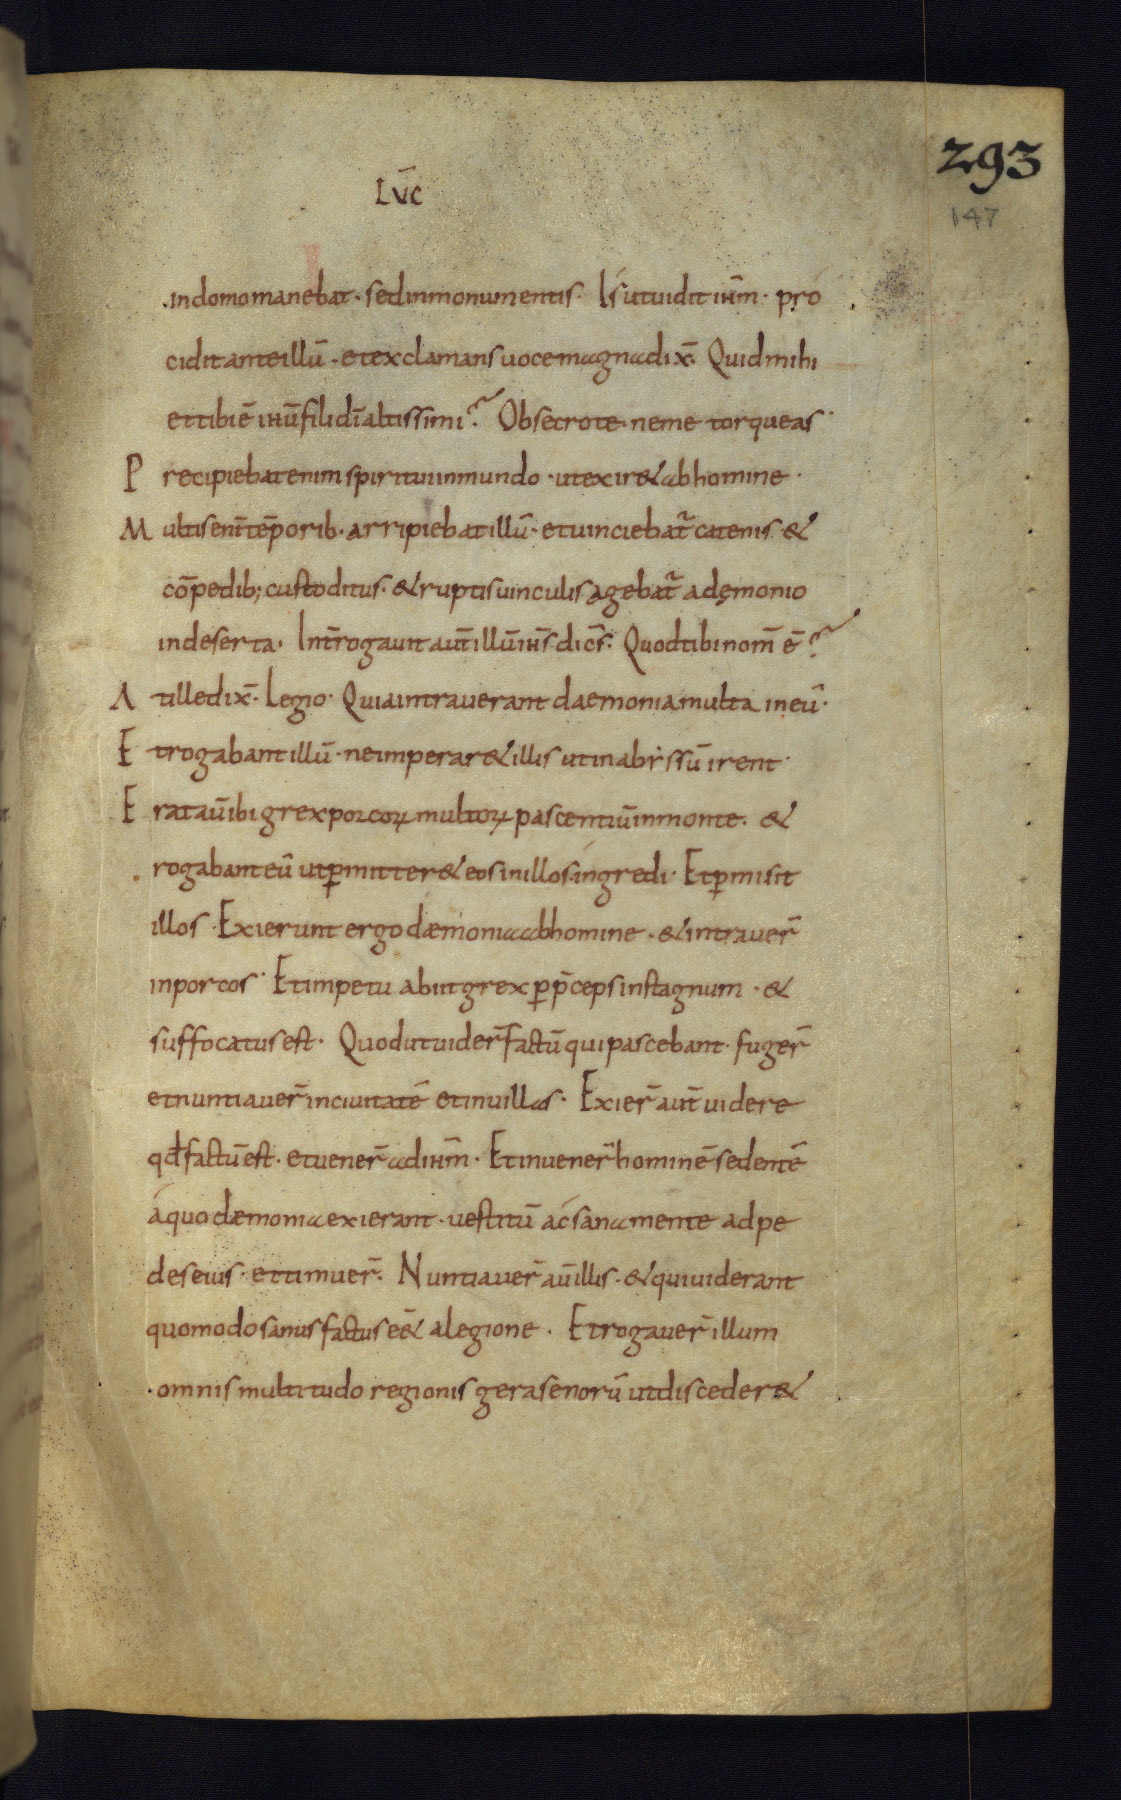 293
147
LūC
indomomanebat · sedinmonumentis · Is utuidit ihm̄ · pro
cidit anteillū · et exclamans uoce magna dix̄ · Quid mihi
et tibi ē ihū fili dī altissimi? Obsecro te · ne me torqueas ·
P recipiebat enim spiritui inmundo · ut exir& ab homine ·
M ultis enī tēporib · arripiebat illū · et uinciebat̄ catenis &
cōpedib; custoditus · & ruptis uinculis agebat̄ a dęmonio
in deserta · Int̄rogauit aut̄ illū ihs̄ dic̄s · Quod tibi nom̄ ē?
A t ille dix̄ · Legio · Quia intrauerant daemonia multa in eū ·
E t rogabant illū · ne imperar& illis ut in abyssū irent ·
E rat aū ibi grex porcoꝝ multoꝝ pascentiū in monte · &
rogabant eū ut ꝑmitter& eos in illos ingredi · Et ꝑmisit
illos · Exierunt ergo dæmonia ab homine · & intrauer̄
in porcos · Et impetu abiit grex ꝑ p̄ceps in stagnum · &
suffocatus est · Quod ut uider̄ factū qui pascebant · fuger̄
et nuntiauer̄ in ciuitatē et in uillas · Exier̄ aut̄ uidere
qđ factū est · et uener̄ ad ihm̄ · Et inuener̄ hominē sedentē
a quo dæmonia exierant · uestitū ac sana mente ad pe
des eius · et timuer̄ · Nuntiauer̄ aū illis · & qui uiderant
quomodo sanus factus eē& a legione · Et rogauer̄ illum
omnis multitudo regionis gerasenorū ut disceder&